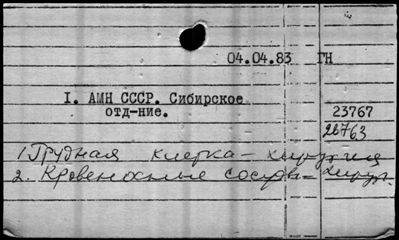 04.04.83 ГН
I. АМН СССР. Сибирское
отд-ние.
23767
26763
1. Грудная клетка – хирургия
2. Кровеносные сосуды – хирург.